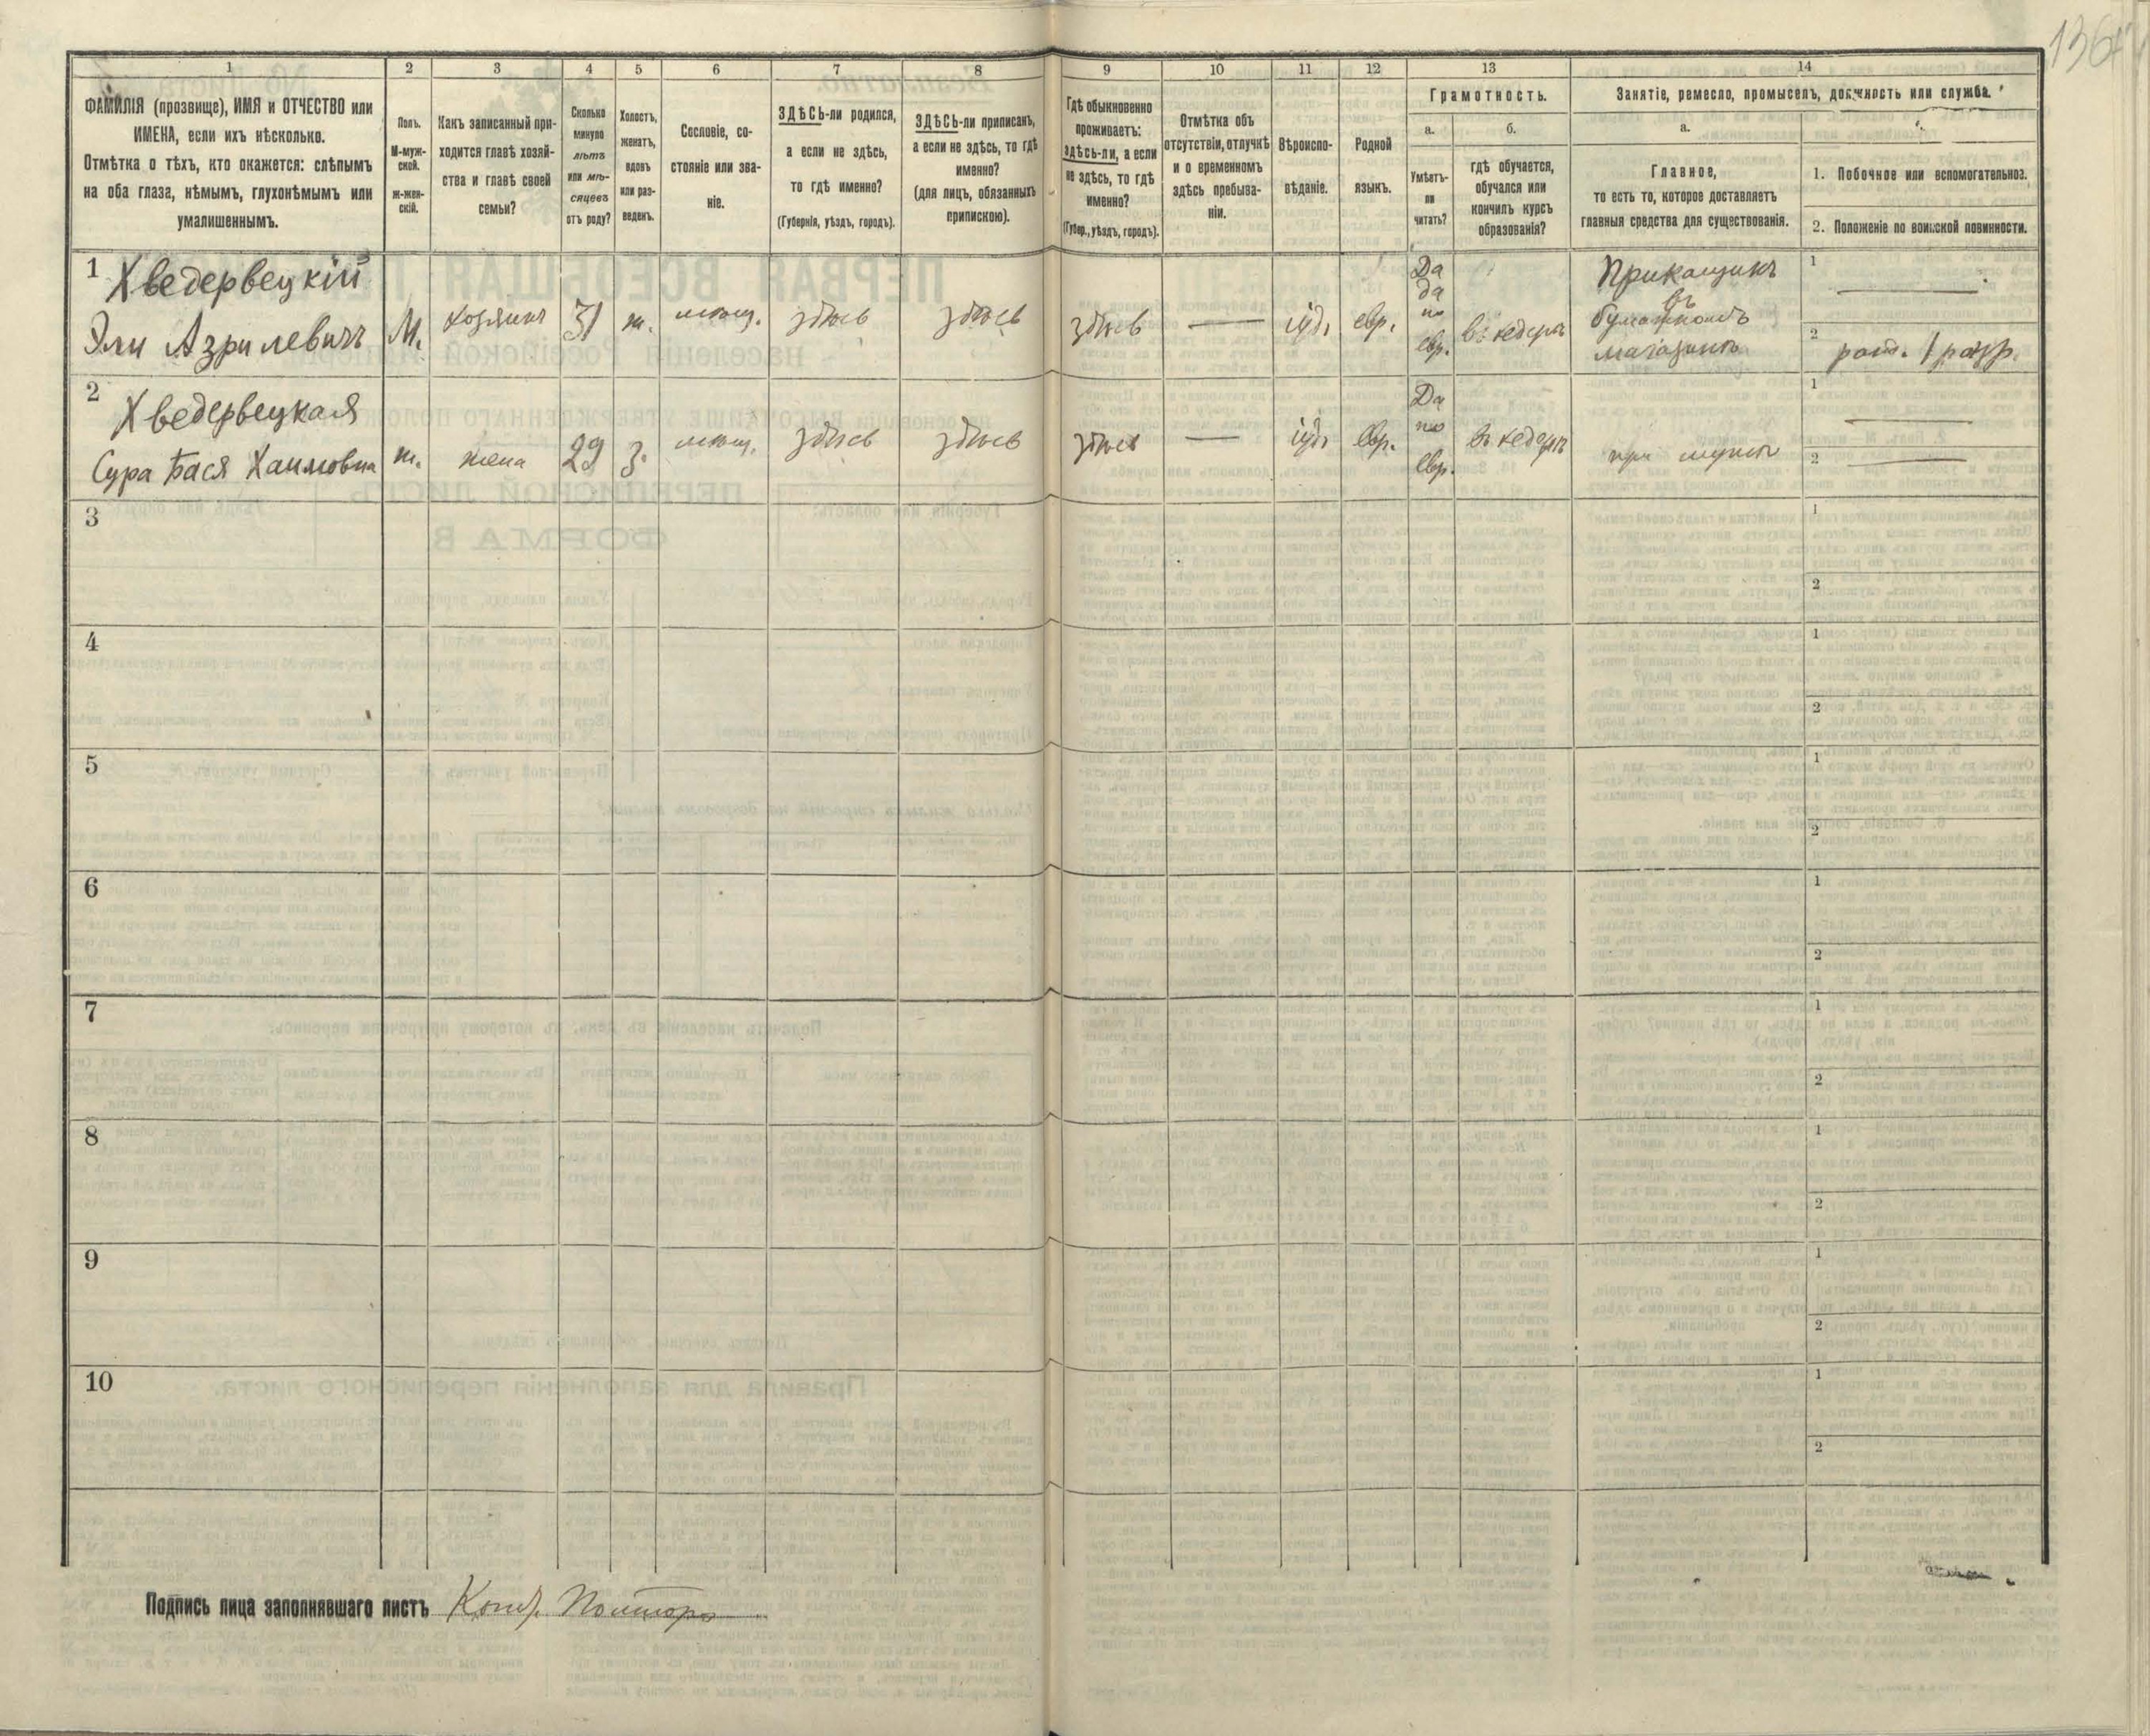 136
1
2
3
4
5
6
7
8
9
10
11
12
13
14
ФАМИЛІЯ (прозвище), ИМЯ и ОТЧЕСТВО или
ИМЕНА, если ихъ нѣсколько.
Отмѣтка о тѣхъ, кто окажется: слѣпымъ
на оба глаза, нѣмымъ, глухонѣмымъ или
умалишеннымъ.
Полъ.
М-муж-
ской.
Ж-жен-
скій.
Какъ записанный при-
ходится главѣ хозяй-
ства и главѣ своей
семьи?
Сколько
минуло
лѣтъ
или мѣ-
сяцевъ
отъ роду?
Холостъ,
женатъ,
вдовъ
или раз-
веденъ.
Сословіе, со-
стояніе или зва-
ніе.
ЗДѢСЬ-ли родился,
а если не здѣсь,
то гдѣ именно?
(Губернія, уѣздъ, городъ).
ЗДѢСЬ-ли приписанъ,
а если не здѣсь, то гдѣ
именно?
(для лицъ, обязанныхъ
припискою).
Гдѣ обыкновенно
проживаетъ:
здѣсь-ли, а если
не здѣсь, то гдѣ
именно?
(Губер., уѣздъ, городъ).
Отмѣтка объ
отсутствіи, отлучкѣ
и о временномъ
здѣсь пребыва-
ніи.
Вѣроиспо-
вѣданіе.
Родной
языкъ.
Грамотность.
а.
Умѣетъ-
ли
читать?
б.
гдѣ обучается,
обучался или
кончилъ курсъ
образованія?
Занятіе, ремесло, промыселъ, должность или служба.
а.
Главное,
то есть то, которое доставляетъ
главныя средства для существованія.
1. Побочное или вспомогательное.
2. Положеніе по воинской повинности.
1
Хведервецкій
Эли Азрилевичъ
М.
хозяинъ
31
ж.
мѣщ.
здѣсь
здѣсь
здѣсь
—
іуд.
евр.
Да
да
по
евр.
въ хедерѣ
Прикащикъ
въ
бумажномъ
магазинѣ
1
—
2
рат. 1 разр.
2
Хведервецкая
Сура Бася Хаимовна
ж.
жена
29
з.
мѣщ.
здѣсь
здѣсь
здѣсь
—
іуд.
евр.
Да
по
евр.
въ хедерѣ
при мужѣ
1
—
2
—
3
1
2
4
1
2
5
1
2
6
1
2
7
1
2
8
1
2
9
1
2
10
1
2
Подпись лица заполнявшаго листъ